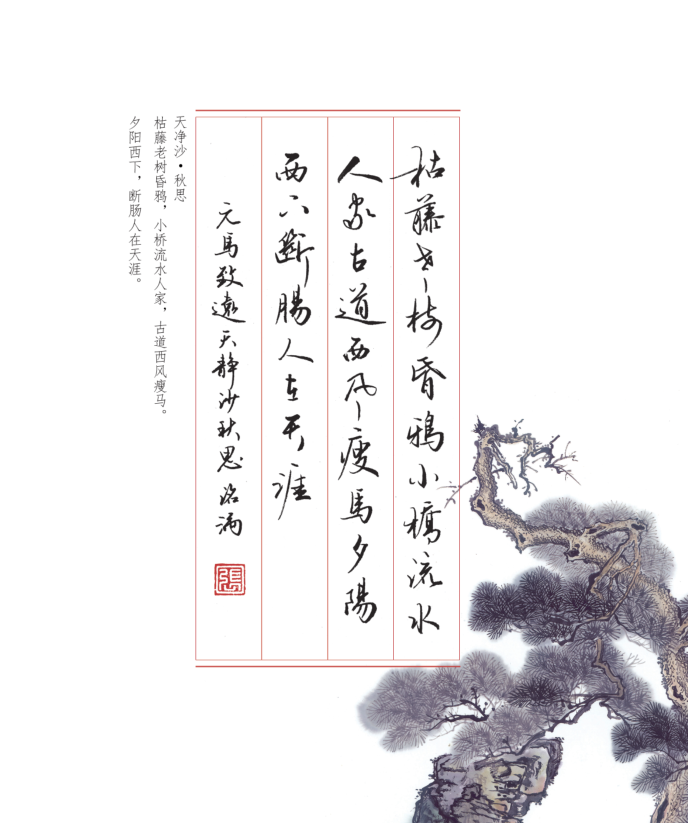 枯藤老樹昏鴉小橋流水
人家古道西风瘦馬夕陽
西下斷腸人在天涯
元馬致遠天静沙秋思
張
天净沙·秋思
枯藤老树昏鸦，小桥流水人家，古道西风瘦马。
夕阳西下，断肠人在天涯。